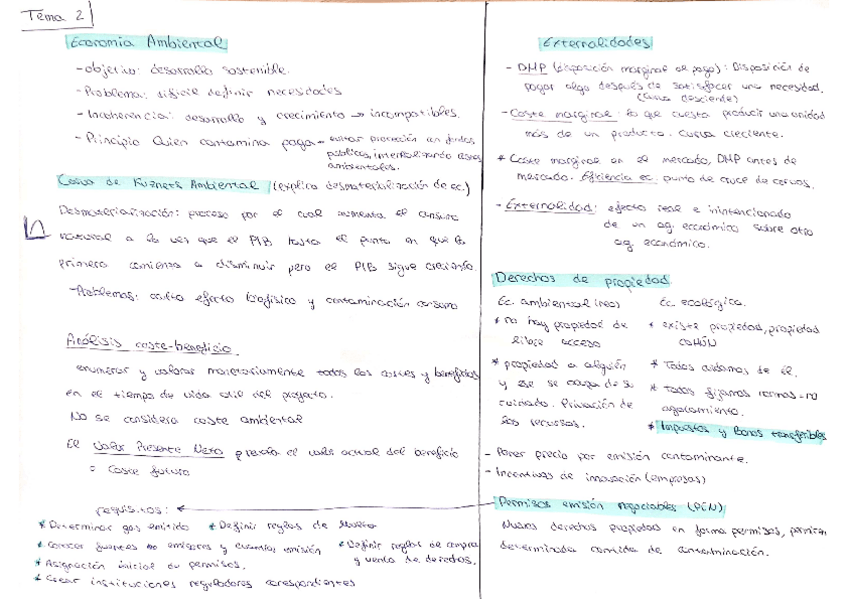 Tema 2
Economía Ambiental
- objetivo: desarrollo sostenible.
- Problema: difícil definir necesidades
- Incoherencia: desarrollo y crecimiento → incompatibles.
- Principio Quien contamina paga → evitar protección con fondos
públicos, internalizando costes
ambientales.
Curva de Kuznets Ambiental (explica desmaterialización de ec.)
Desmaterialización: proceso por el cual aumenta el consumo
natural a la vez que el PIB hasta el punto en que la
primera comienza a disminuir pero el PIB sigue creciendo.
- Problemas: oculta efecto biofísico y contaminación consumo
Análisis coste-beneficio.
enumerar y valorar monetariamente todos los costes y beneficios
en el tiempo de vida útil del proyecto.
No se considera coste ambiental
El Valor Presente Neto el valor actual del beneficio
= Coste futuro
requisitos:
* Determinar gas emitido * Definir reglas de
* conocer fuentes emisores y emisión * Definir reglas de compra
y venta de derechos.
* Asignación inicial de permisos.
* Crear instituciones reguladoras correspondientes
Externalidades
- DMP (disposición marginal al pago): Disposición de
pagar algo después de satisfacer una necesidad.
(Curva decreciente)
- Coste marginal: lo que cuesta producir una unidad
más de un producto. Curva creciente.
* Coste marginal en el mercado, DMP antes de
mercado. Eficiencia ec. punto de cruce de curvas.
- Externalidad: efecto real e inintencionado
de un ag. económico sobre otro
ag. económico.
Derechos de propiedad
Ec. ambiental (neo)
* no hay propiedad de
libre acceso
* propiedad a alguien
y ese se ocupa de su
cuidado. Privación de
los recursos.
Ec. ecológica.
* existe propiedad, propiedad
común
* Todos cuidamos de él.
* Todos fijamos normas → no
agotamiento.
* Impuestos y Bonos transferibles
- Poner precio por emisión contaminante.
- Incentivos de innovación (empresas)
Permisos emisión negociables (PEN)
Nuevos derechos propiedad en forma permisos, permiten
determinada cantidad de contaminación.